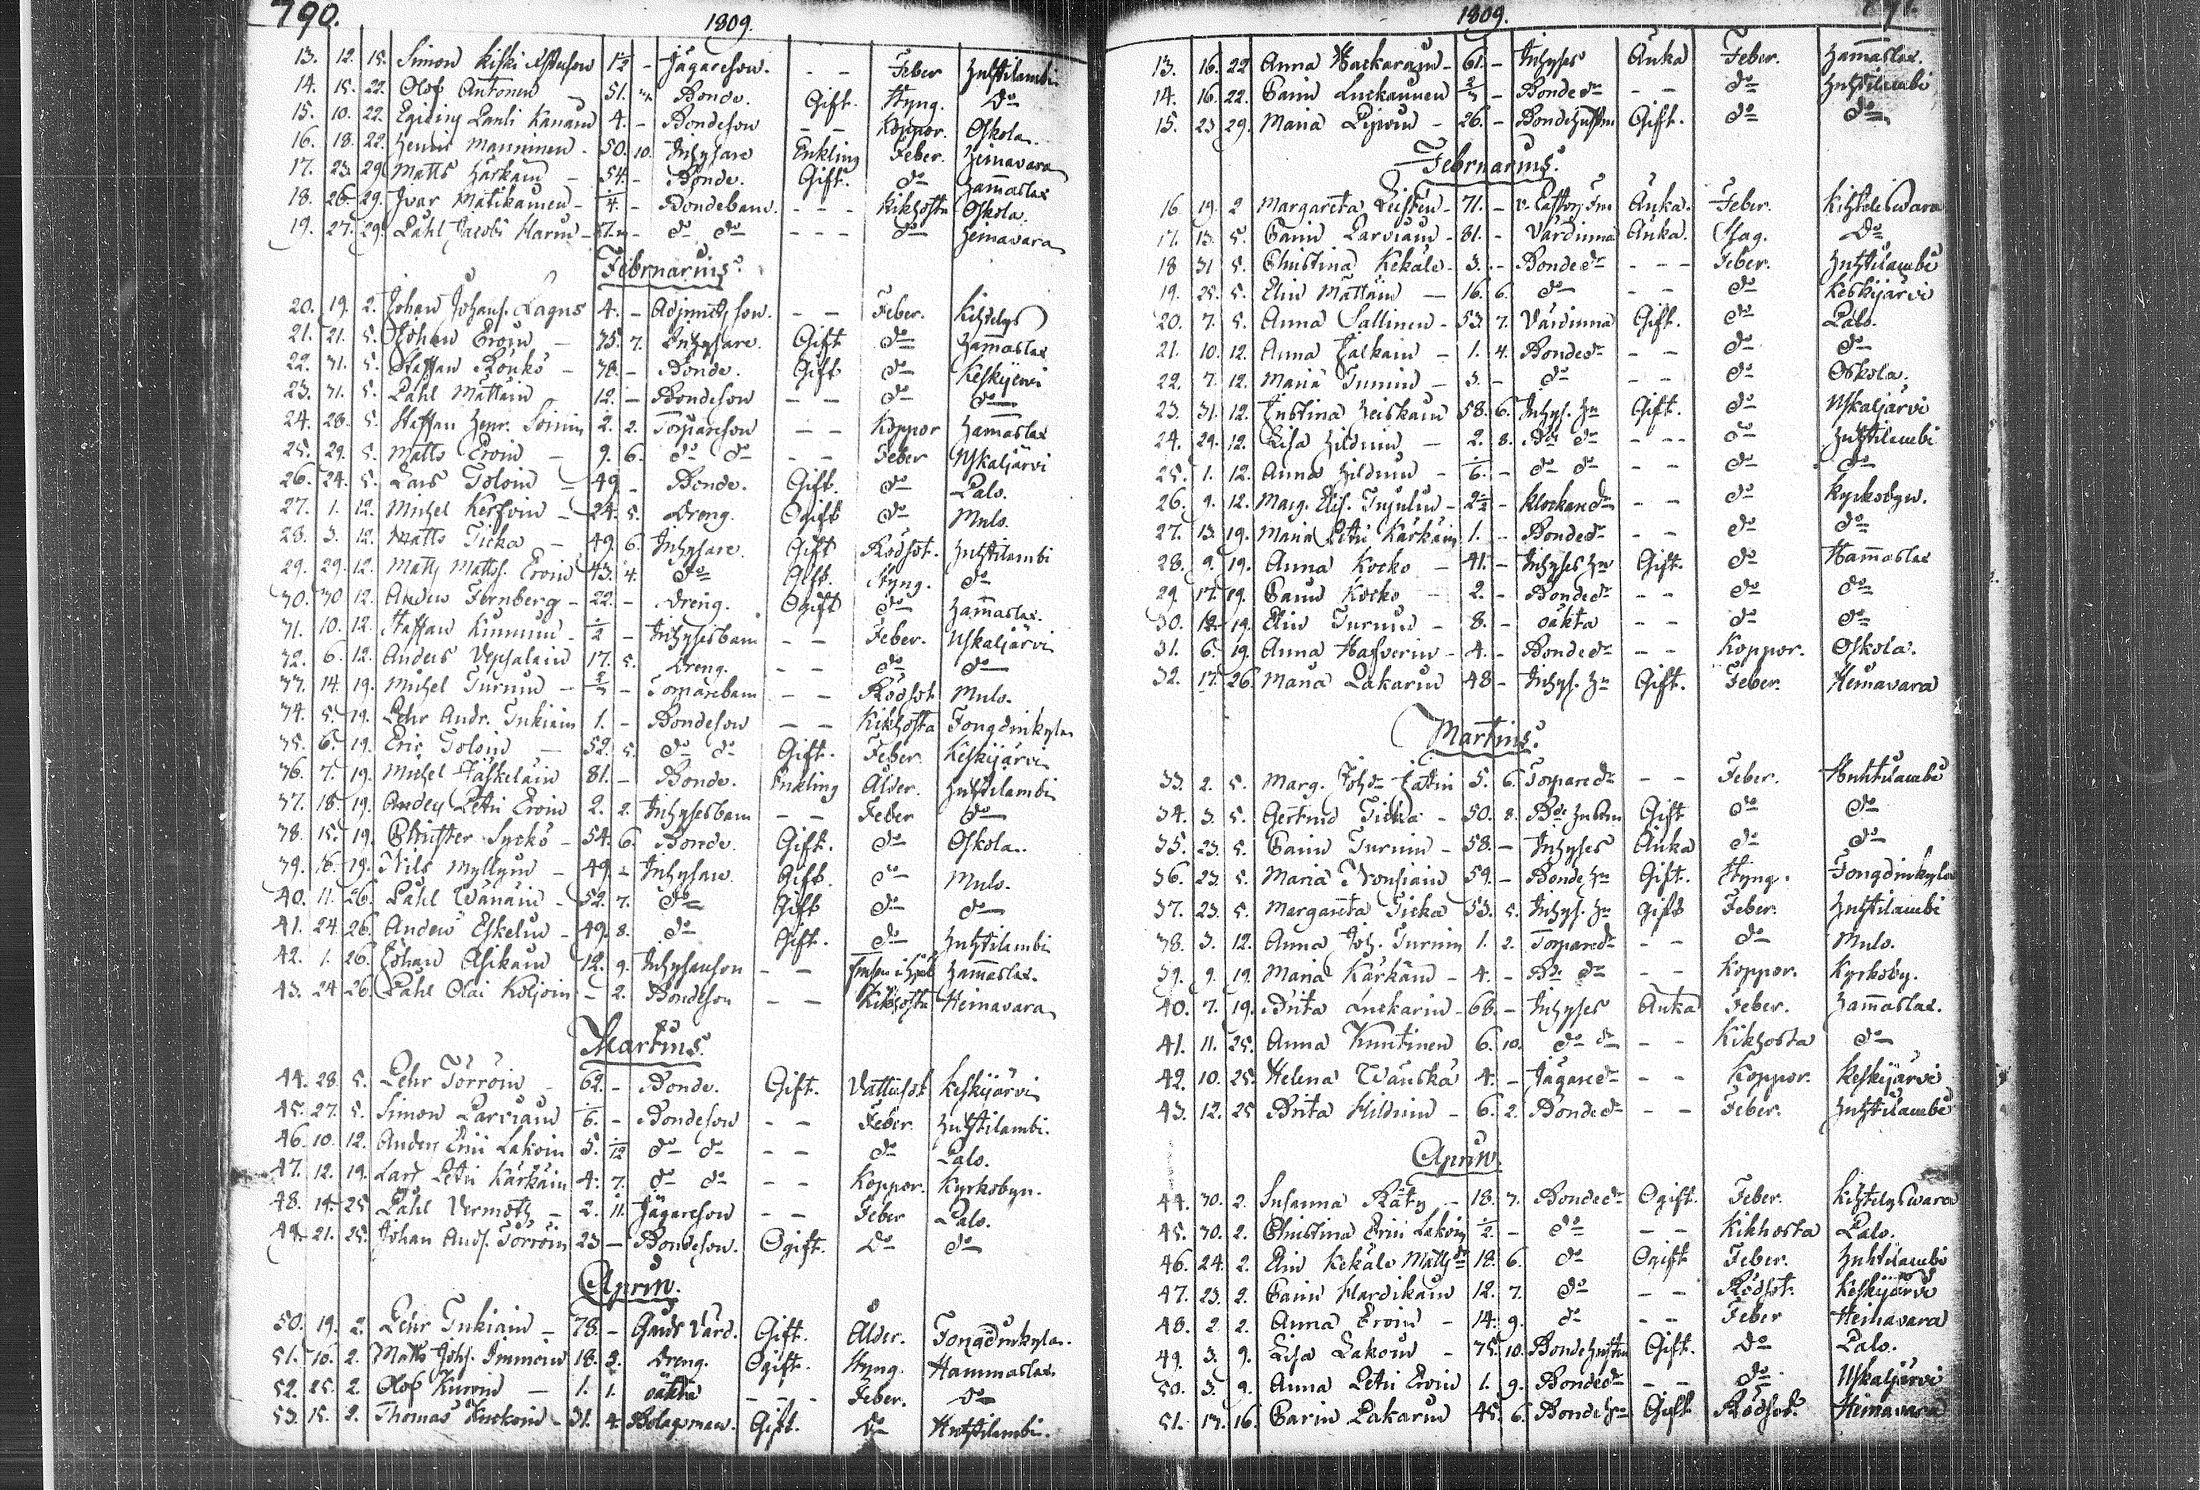 790.
1809.
13. 12. 15. Simon Kiski 1/2 - Jägareson. - - Feber Huhtilambi
14. 15. 22. Olof Antonen 51. Bonde. Gift. Styng. Do
15. 10. 22. Pauli 4. - Bondeson - - Koppor. Oskola.
16. 18. 22. Henric Manninen. 50. 10. Inhysare Enkling Feber. Heinavara
17. 23. 29. Matts Härkäin - 54. - Bonde. Gift. do Hammaslax
18. 26. 29. Ivar Matikainen - 1/4 - Bondebarn. - - - Kikhosta Oskola.
19. 27. 29. Påhl Jacobs Harin - do do - - - do Heinavara
Februarius.
20. 19. 2. Johan Johans. Lagus 4. - Adjuncts son. - - Feber.
21. 21. 5. Johan Eroin - 35. 7. Inhysare. Gift do Hammaslax
22. 31. 5. Staffan Rönkö - 38. - Bonde. Gift do Keskijervi
23. 31. 5. Påhl Mättäin 12. - Bondeson - - do do
24. 28. 5. Staffan Henr. Soinin 2. 2. Torpareson - - Koppor Hammaslax
25. 29. 5. Matts Eroin - 9. 6. do do - - Feber Uskaljärvi
26. 24. 5. Lars Toloin - 49. - Bonde. Gift. do Palo.
27. 1. 12. Michel Kerfvin - 24. 5. Dreng. Ogift do Mulo.
28. 3. 12. Matts Ticka - 49. 6. Inhysare. Gift Rödsot. Huhtilambi
29. 29. 12. Matts Mattss. Eroin 43. 4. do Gift. Styng. do
30. 30. 12. Anders Fernberg - 22. - Dreng. Ogift do Hammaslax.
31. 10. 12. Staffan Kinnunen - 1/2 - Inhysesbarn - - Feber. Uskaljärvi
32. 6. 12. Anders Vepsäläin 17. 5. Dreng. - - do do
33. 14. 19. Michel Turuin - 2/3 - Torparebarn - - Rödsot Mulo.
34. 5. 19. Pehr Andr. Tukiain 1. - Bondeson - - Kikhosta Jongduinkyla
35. 6. 19. Eric Toloin - 52. 5. do do Gift. Feber. Keskijärvi
36. 7. 19. Michel Jäskeläin 81. - Bonde. Enkling Ålder. Huhtilambi
37. 18. 19. Anders Petri Eroin 2. 2. Inhysesbarn - - Feber do
38. 15. 19. Christer Syckö - 54. 6. Bonde. Gift. do Oskola.
39. 16. 19. Nils Myllyin - 49. - Inhysare. Gift. do Mulo.
40. 11. 26. Påhl Wänäin - 52. 7. do Gift do do
41. 24. 26. Anders Eskelin - 49. 8. do Gift. do Huhtilambi
42. 1. 26. Johan Asikain 12. 9. Inhysareson - - Hammaslax.
43. 24. 26. Påhl Olai Koljoin - 2. Bondeson - - Kikhosta Heinavara
Martius.
44. 28. 5. Pehr Törröin - 62. - Bonde. Gift. Vattusot Keskijärvi
45. 27. 5. Simon Parviain 1/6. - Bondeson - - Feber. Huhtilambi.
46. 10. 12. Anders Erici Lakoin 5. 1/12 do do - - do Palo.
47. 12. 19. Lars Petri Kärkäin 4. 7. do do - - Koppor. Kyrkobyn.
48. 14. 25. Påhl Vermöty - 2. 11. Jägareson - - Feber Palo.
49. 21. 25. Johan Ands. Törröin 23 - Bondeson. Ogift. Do do
Aprill.
50. 19. 2. Pehr Tukiain - 78. - Gaml. Värd. Gift. Ålder. Jongduinkyla.
51. 16. 2. Matts Johs. Immoin 18. 3. Dreng. Ogift. Styng. Hammaslax.
52. 25. 2. Olof Kurvin - 1. 1. oäkta - - - Feber. do
53. 15. 2. Thomas Kuckoin - 31. 4. Bolagsman. Gift. Do Huhtilambi.
791.
1809.
13. 16. 22 Anna Hackarain - 61. - Inhyses Änka Feber. Hammaslax.
14. 16. 22. Carin Luckauinen 2/3 - Bonde dr - - do Huhtilambi
15. 23 29. Maria Pijroin - 26. - Bondehustru Gift. do do
Februarius.
16 19. 2 Margareta Leisten - 71. - Änka. Feber. Kihtelswara
17. 13. 5. Carin Parviain - 81. - Värdinna Änka. Do
18 31 5. Christina Kekäle - 3. - Bonde dr - - - Feber. Huhtilambi
19. 25. 5. Elin Mättäin - 16. 6. do - - do Keskijärvi
20. 7. 5. Anna Sallinen - 53. 7. Värdinna Gift. do Palo.
21. 10. 12. Anna Jalkain - 1. 4. Bonde dr - - do do
22. 7. 12. Maria Tunnin - 3. - do - - do Oskola.
23. 31. 12. Justina Heiskain 58. 6. Inhys. Hu Gift. do Uskaljärvi
24. 29. 12. Lisa Hilduin - 2. 8. do do - - - do Huhtilambi
25. 1. 12. Anna Hilduin - 1/6. - do do - - do do
26. 9. 12. Marg. Elis. 2 1/2 - Klockare dr - - do Kyrkobyn.
27. 13. 19. Maria Petri Kärkäin 1. - Bonde dr - - do do
28. 9. 19. Anna Kocko - 41. - Inhyses Hu Gift. do Hammaslax
29. 17. 19. Carin Kocko - 2. - Bonde dr - - do do
30. 12. 19. Elin Turuin - 8. - oäkta - - do do
31. 6. 19. Anna Hafverin - 4. - Bonde dr - - Koppor. Oskola.
32. 17. 26. Maria Pakarin 48 - Inhys. Hu Gift. Feber. Heinavara
Martius.
33. 2. 5. Marg. Johdr 5. 6. Torpare dr - - Feber. Huhtilambi
34. 3. 5. Gertrud Ticka - 50. 8. Gift do do
35. 23. 5. Carin Turuin - 58. - Inhyses Änka do do
36. 23. 5. Maria Nousiain 59. - Bonde Hu Gift. Styng. Jongduinkyla
37. 23. 5. Margareta Ticka 53. 5. Inhys. Hu Gift Feber. Huhtilambi
38. 3. 12. Anna Joh. Turuin 1. 2. Torpare dr - - do Mulo.
39. 9. 19. Maria Kärkäin - 4. - Bde dr - - Koppor. Kyrkoby.
40. 7. 19. Brita Luckarin - 68. - Inhyses Änka Feber. Hammaslax.
41. 11. 25. Anna Knutinen 6. 10. do do - - Kikhosta do
42. 10. 25. Helena Wänskä 4. - Jägare dr - - Koppor. Keskijärvi
43. 12. 25 Brita Hilduin - 6. 2. Bonde dr - - Feber. Huhtilambi
Aprill.
44. 30. 2. Susanna Räty - 18. 7. Bonde dr Ogift. Feber. Kihtelyswara
45. 30. 2. Christina Erici Lakoin 1/2 - do - - Kikhosta Palo.
46. 24. 2. Elin Kekäle Matts dr 18. 6. do Ogift Feber. Huhtilambi
47. 23. 2. Carin Hardikain 12. 7. do - - Rödsot. Keskijärvi
48. 2 2. Anna Eroin - 14. 9. do - - Feber Heinavara
49. 3. 9. Lisa Lakoin - 75. 10. Bondehustru Gift. Do Palo.
50. 3. 9. Anna Petri Eroin 1. 9. Bonde dr - - do Uskaljärvi
51. 17. 16. Carin Pakarin 45. 6. Bonde Hu Gift Rödsot. Heinavara